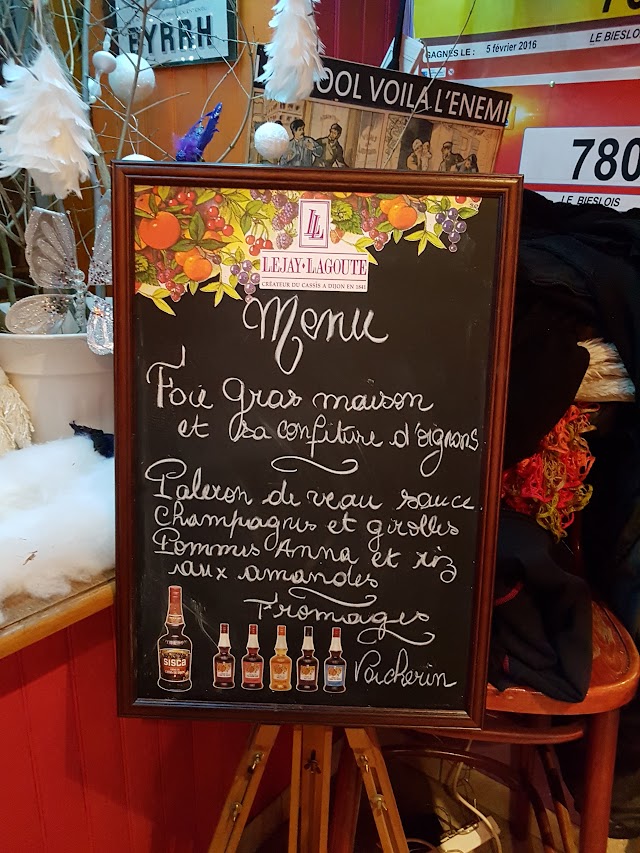 BYRRH
L'ALCOOL VOILÀ L'ENNEMI
GAGNÉS LE : 5 février 2016
LE BIESLOIS
780
LE BIESLOIS
LL
LEJAY-LAGOUTE
CRÉATEUR DU CASSIS A DIJON EN 1841
Menu
Foie gras maison
et sa confiture d'oignons
Paleron de veau sauce
Champagnes et girolles
Pommes Anna et riz
aux amandes
Fromages
Vacherin
SISCA